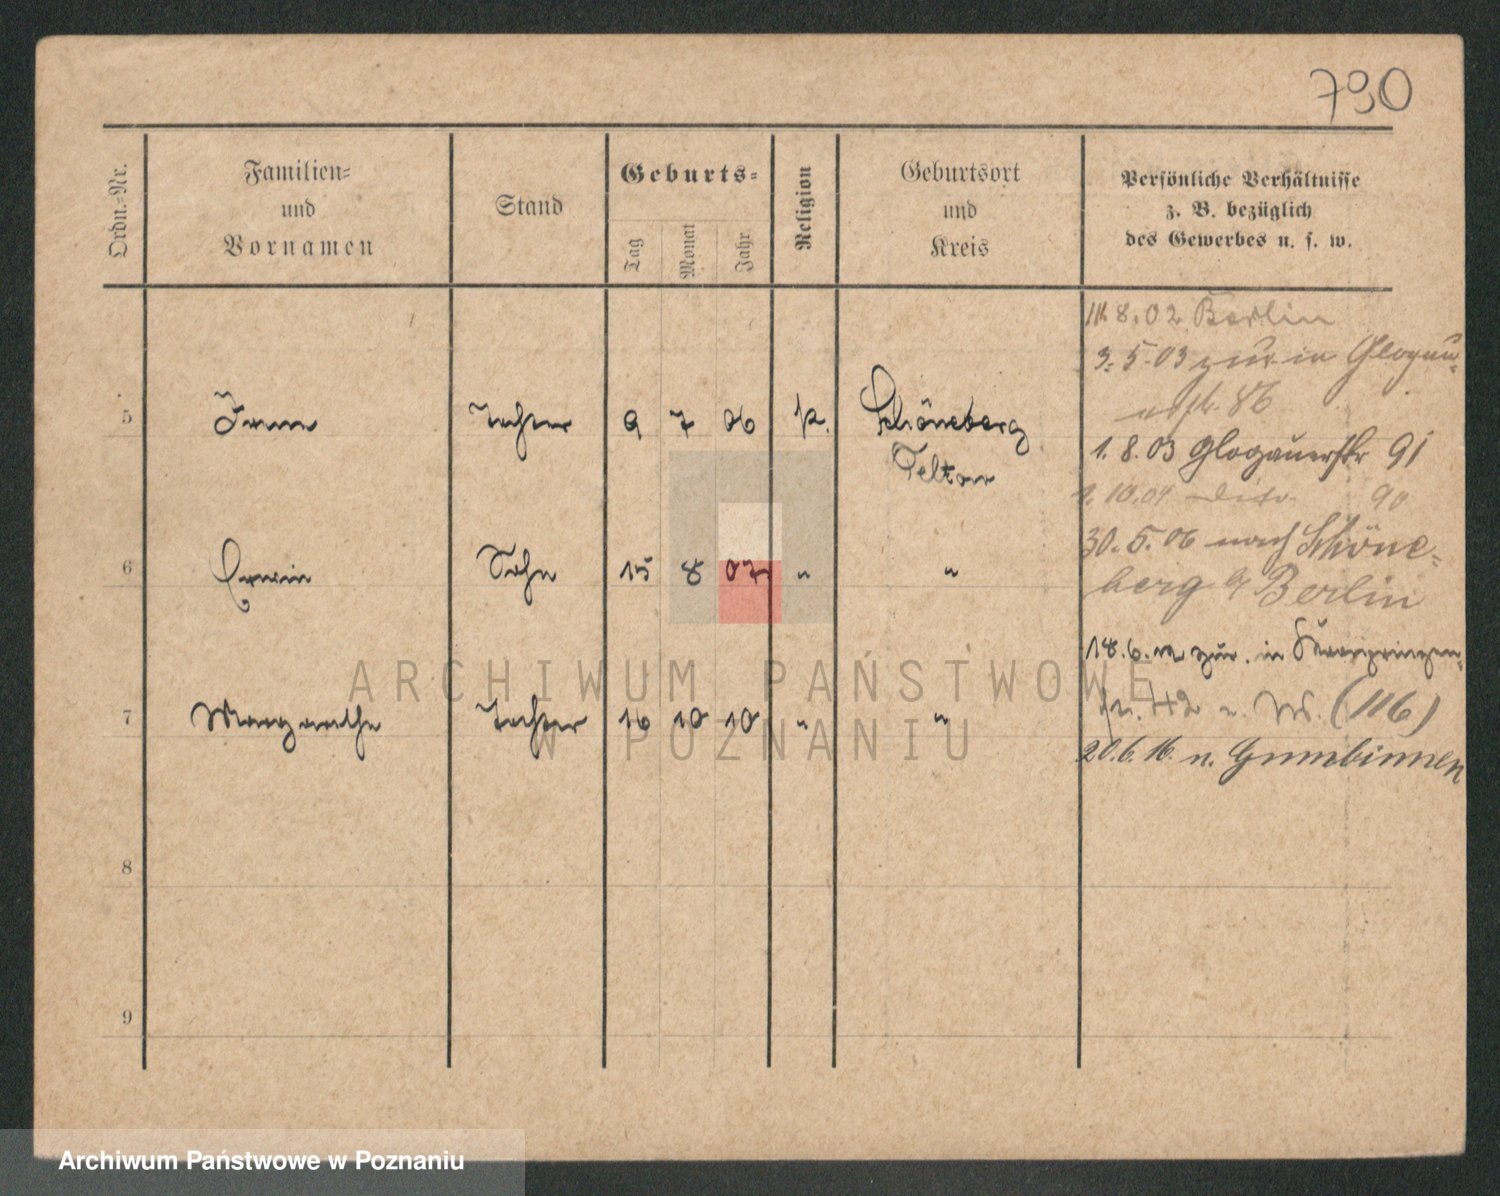 790
Ordn.-Nr.
Familien-
und
Vornamen
Stand
Geburts-
Tag
Monat
Jahr
Religion
Geburtsort
und
Kreis
Persönliche Verhältnisse
z. B. bezüglich
des Gewerbes u. s. w.
8.02 Berlin
3.5.03 zur. in Glogau-
86
1.8.03 Glogauerstr 91
1.10.04 dito 90
30.5.06 nach Schöne-
berg b/ Berlin
18.6. zur. in Kronprinzen-
42 (116)
20.6.16. n. Gumbinnen
5 Tochter 9 7 06 k. Schöneberg
Teltow
6 Erwin Sohn 15 8 07 " "
7 Margarethe Tochter 16 10 10 " "
8
9
ARCHIWUM PAŃSTWOWE
W POZNANIU
Archiwum Państwowe w Poznaniu